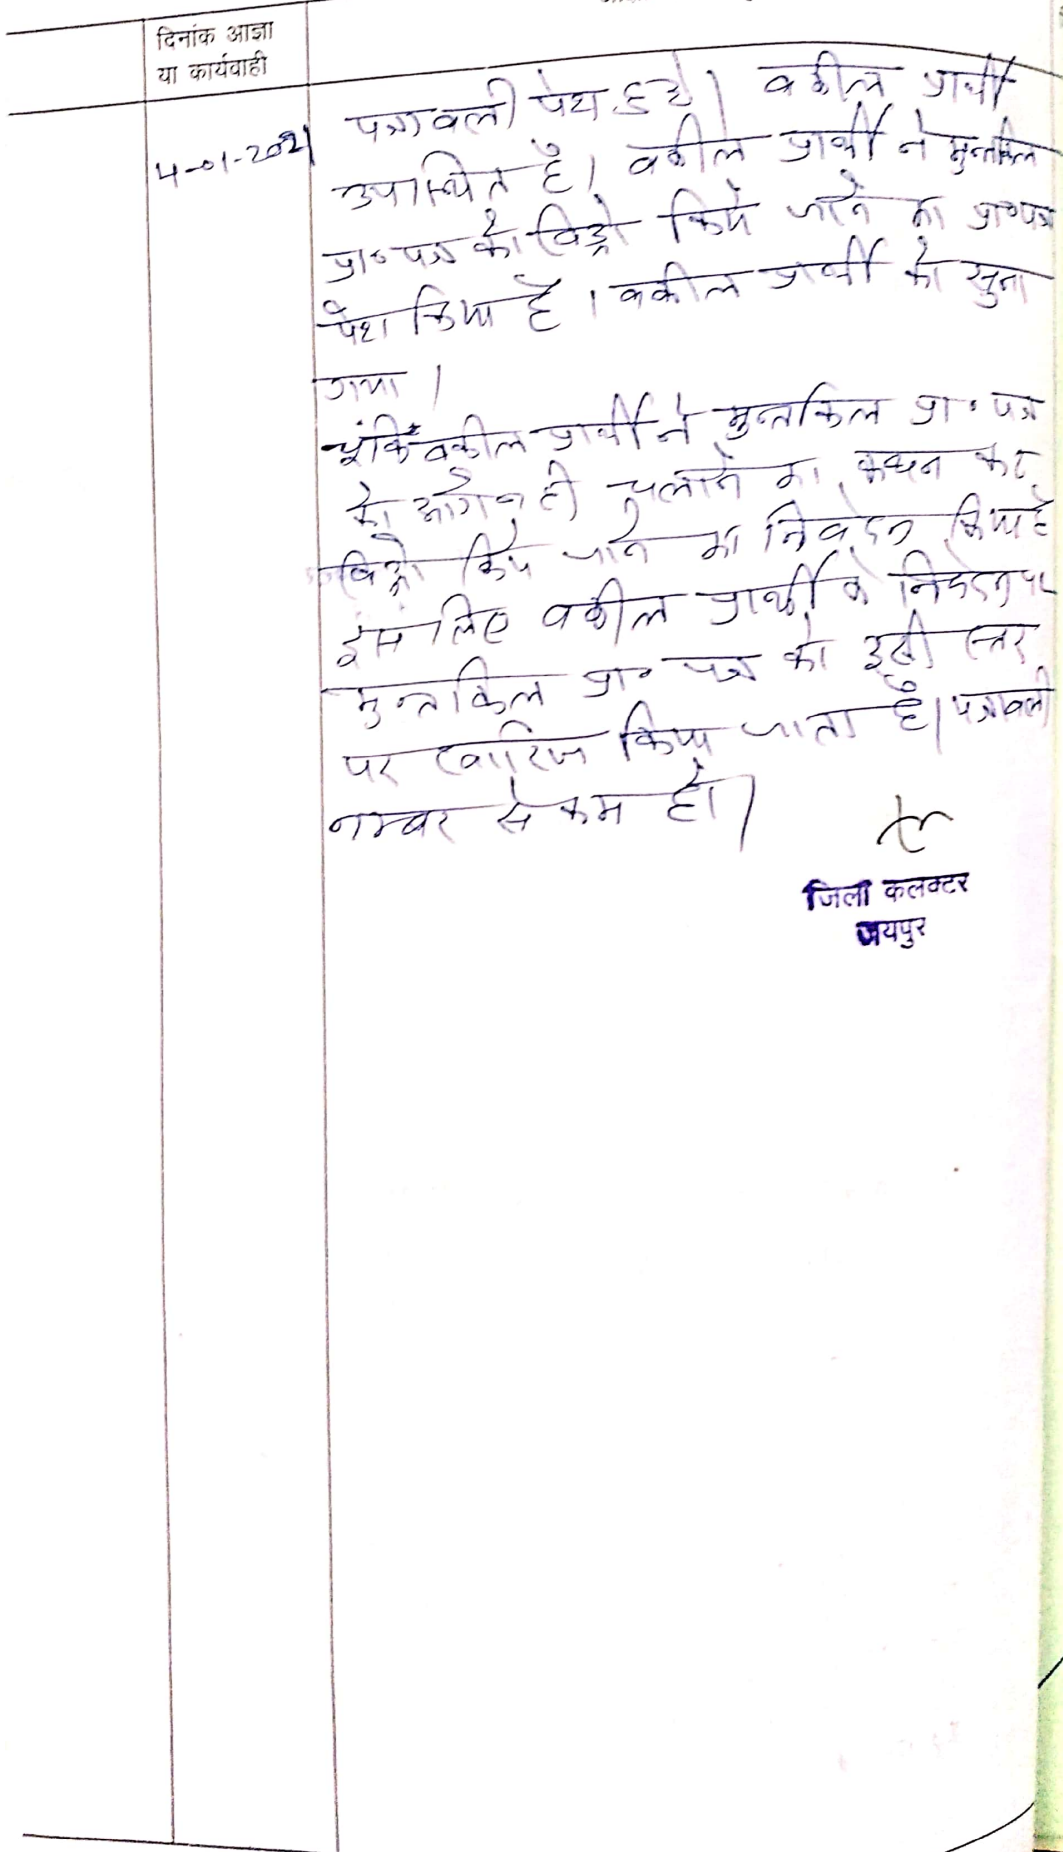 दिनांक आज्ञा
या कार्यवाही
4-01-2021
पत्रावली पेश हुई। वकील प्रार्थी
उपास्थित है। वकील प्रार्थी ने मुन्तकिल
प्रा० पत्र को विड्रो किये जाने का प्रा०पत्र
पेश किया है। वकील प्रार्थी को सुना
गया।
चूंकि वकील प्रार्थी ने मुन्तकिल प्रा० पत्र
को आगे नही चलाने का कथन कर
विड्रो किये जाने का निवेदन किया है
इस लिए वकील प्रार्थी के निवेदन पर
मुन्तकिल प्रा० पत्र को इसी स्तर
पर खारिज किया जाता है। पत्रावली
नम्बर से कम हो।
जिला कलक्टर
जयपुर